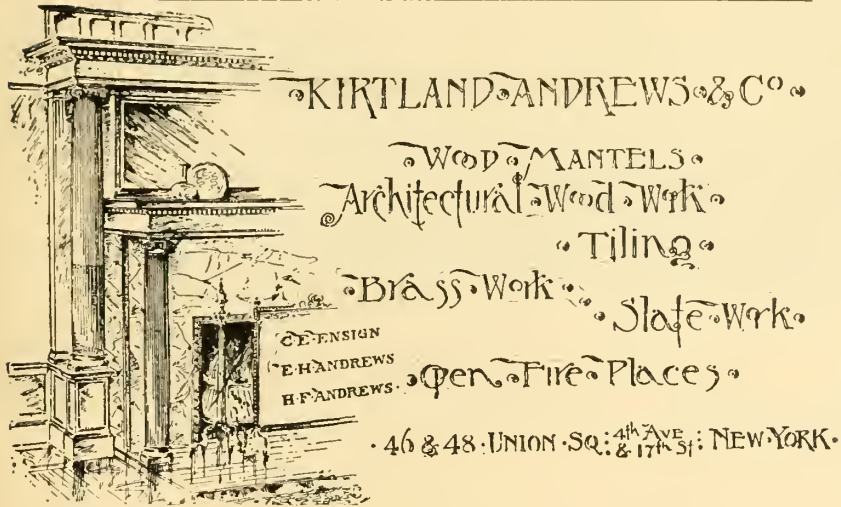 KIRTLAND ANDREWS & Co
WOOD MANTELS
Architectural Wood Work
Tiling
Brass Work
Slate Work
C·E·ENSIGN
E·H·ANDREWS
H·F·ANDREWS·
Open Fire Places
·46 & 48·UNION·SQ: 4th AVE & 17th St: NEW·YORK·